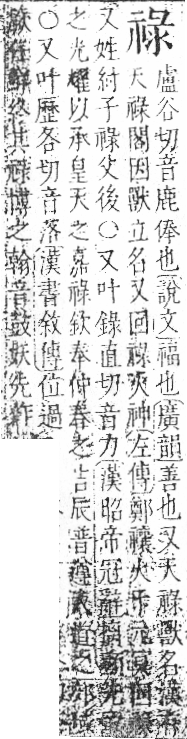 祿
盧谷切音鹿俸也說文福也廣韻善也又天祿獸名漢有
天祿閣因獸立名又回祿火神左傳鄭禳火于元冥回祿
又姓紂子祿父後○又叶錄直切音力漢昭帝冠
之光耀以承皇天之嘉祿欽奉仲春之吉辰普
○又叶歷各切音落漢書敘傳位過
厥任鮮終其祿博之翰音鼓妖先作